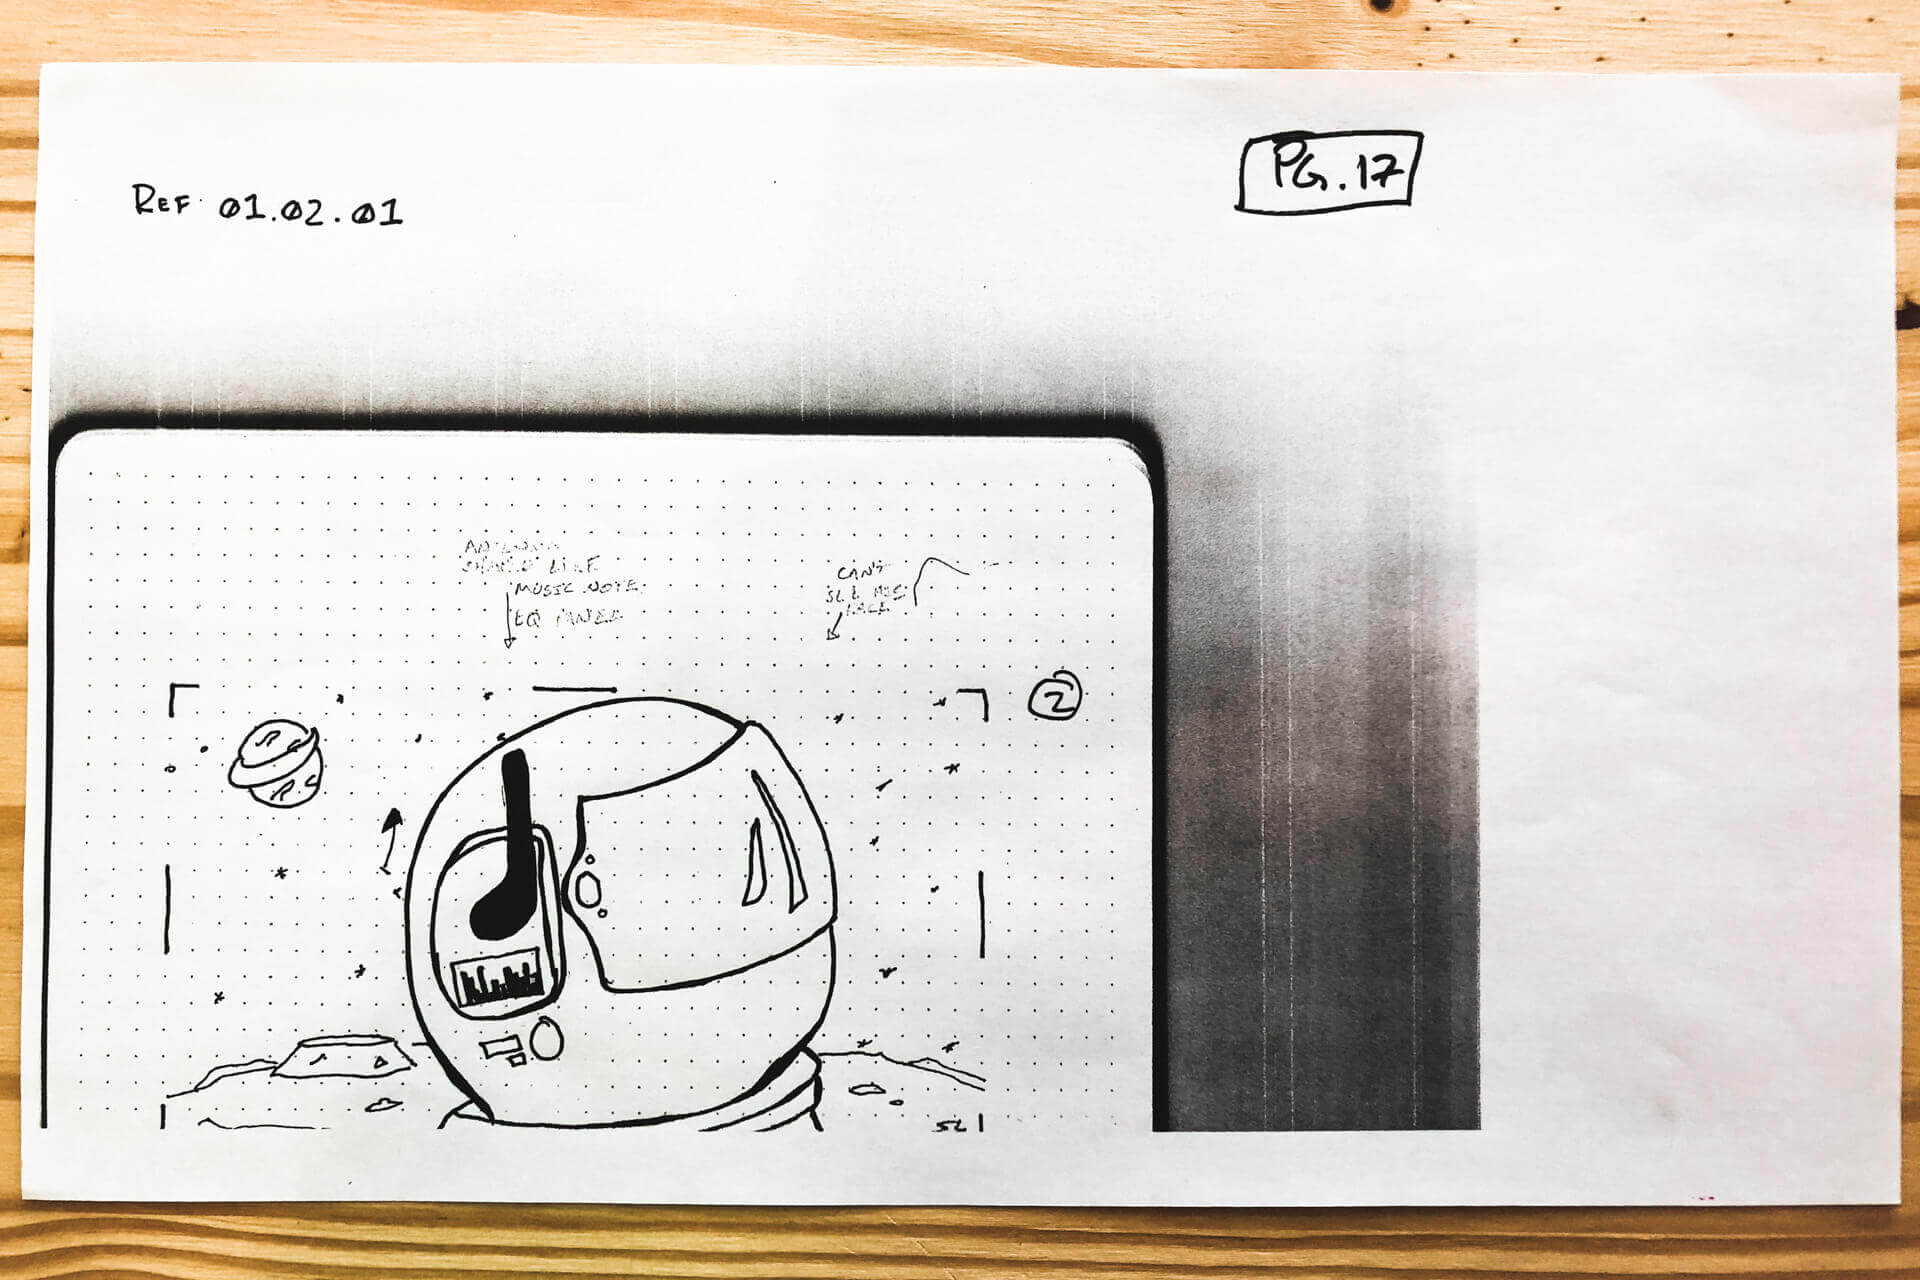 REF 01.02.01
PG.17
ANTENNA
SHAPED LIKE
MUSIC NOTE
EQ PANEL
CAN'T
FACE
2
SL